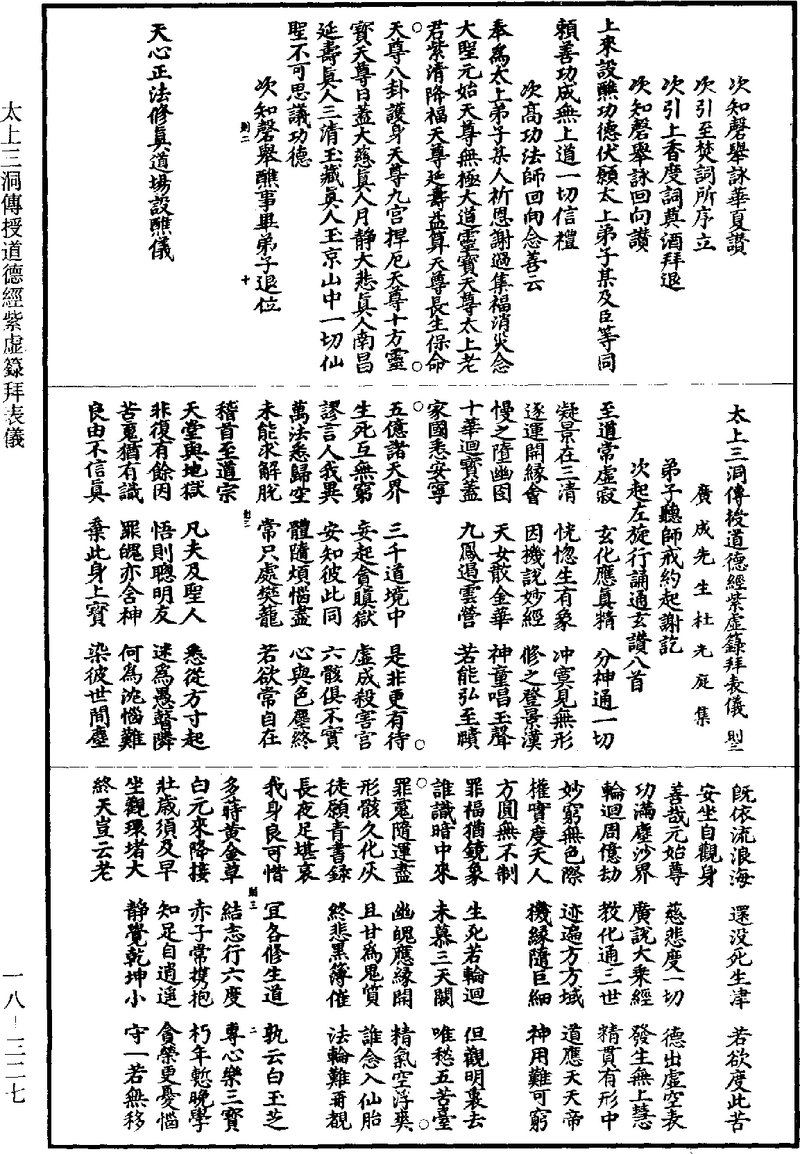 太上三洞傳授道德經紫虛籙拜表儀
一八－三二七
次知磬舉詠華夏讚
次引至焚詞所序立
次引上香度詞奠酒拜退
次知磬舉詠回向讚
上來設醮功德伏願太上弟子某及臣等同
賴善功成無上道一切信禮
次高功法師回向念善云
奉爲太上弟子某人祈恩謝過集福消災念
大聖元始天尊無極大道靈寶天尊太上老
君紫清降福天尊延壽益算天尊長生保命
天尊八卦護身天尊九宮捍厄天尊十方靈
寶天尊日蓋大慈眞人月靜大悲眞人南昌
延壽眞人三清玉藏眞人玉京山中一切仙
聖不可思議功德
次知磬舉醮事畢弟子退位
則二 十
天心正法修眞道場設醮儀
太上三洞傳授道德經紫虛籙拜表儀 則三
廣成先生杜光庭集
弟子聽師戒約起謝訖
次起左旋行誦通玄讚八首
至道常虛寂 玄化應眞精 分神通一切
凝景在三清 恍惚生有象 冲寞見無形
逐運開緣會 因機說妙經 修之登景漢
慢之墮幽囹 天女散金華 神童唱玉聲
十華迴寶蓋 九鳳遏雲營 若能弘至賾
家國悉安寧
五億諸天界 三千道境中 是非更有待
生死互無窮 妄起貪瞋獄 虛成殺害宮
謬言人我異 安知彼此同 六骸俱不實
萬法悉歸空 體隨煩惱盡 心與色塵終
未能求解脫 常只處樊籠 若欲常自在
則三
稽首至道宗
天堂與地獄 凡夫及聖人 悉從方寸起
非復有餘因 悟則聰明友 迷爲愚瞽隣
苦䰟猶有識 罪魄亦含神 何為沈惱難
良由不信眞 棄此身上寶 染彼世間塵
旣依流浪海 還没死生津 若欲度此苦
安坐自觀身
善哉元始尊 慈悲度一切 德出虛空表
功滿塵沙界 廣說大乘經 發生無上慧
輪迴周億劫 教化通三世 精貫有形中
妙窮無色際 迹遍方方域 道應天天帝
權實度天人 機緣隨巨細 神用難可窮
方圓無不制
罪福猶鏡象 生死若輪迴 但觀明裏去
誰識暗中來 未慕三天闕 唯愁五苦臺
罪䰟隨運盡 幽魄應緣開 精氣空浮爽
形骸久化灰 且甘爲鬼質 誰念入仙胎
徒願青書錄 終悲黑簿催 法輪難再覩
長夜足堪哀
我身良可惜 宜各修生道 孰云白玉芝
則三 二
多蒔黃金草 結志行六度 專心樂三寶
白元來降接 赤子常携抱 朽年慙晚學
壯歲須及早 知足自逍遥 貪榮更憂惱
坐觀環堵大 静覺乾坤小 守一若無移
終天豈云老